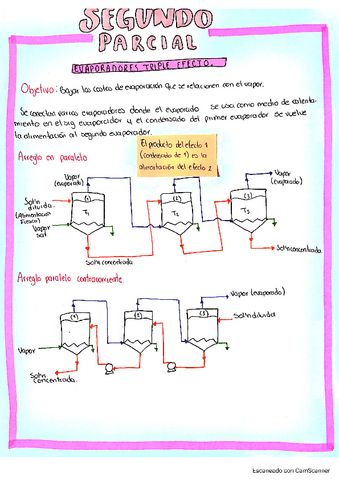 SEGUNDO
PARCIAL
EVAPORADORES TRIPLE EFECTO.
Objetivo: Bajar los costos de evaporación que se relacionen con el vapor.
Se conectan varios evaporadores donde el evaporado se usa como medio de calenta-
miento en el sig evaporador y el condensado del primer evaporador se vuelve
la alimentación al segundo evaporador.
El producto del efecto 1
(condensado de 1) es la
alimentación del efecto 2
Arreglo en paralelo
Vapor
(evaporado)
Vapor
(evaporado)
Sol'n
diluida.
(Alimentación
Fresca)
Vapor
sat
(1)
T1
(2)
T2
(3)
T3
Sol'n concentrada
Sol'n concentrada
Arreglo paralelo contracorriente
Vapor (evaporado)
Sol'n diluida
(1)
(2)
(3)
Vapor
Sol'n
concentrada.
Escaneado con CamScanner